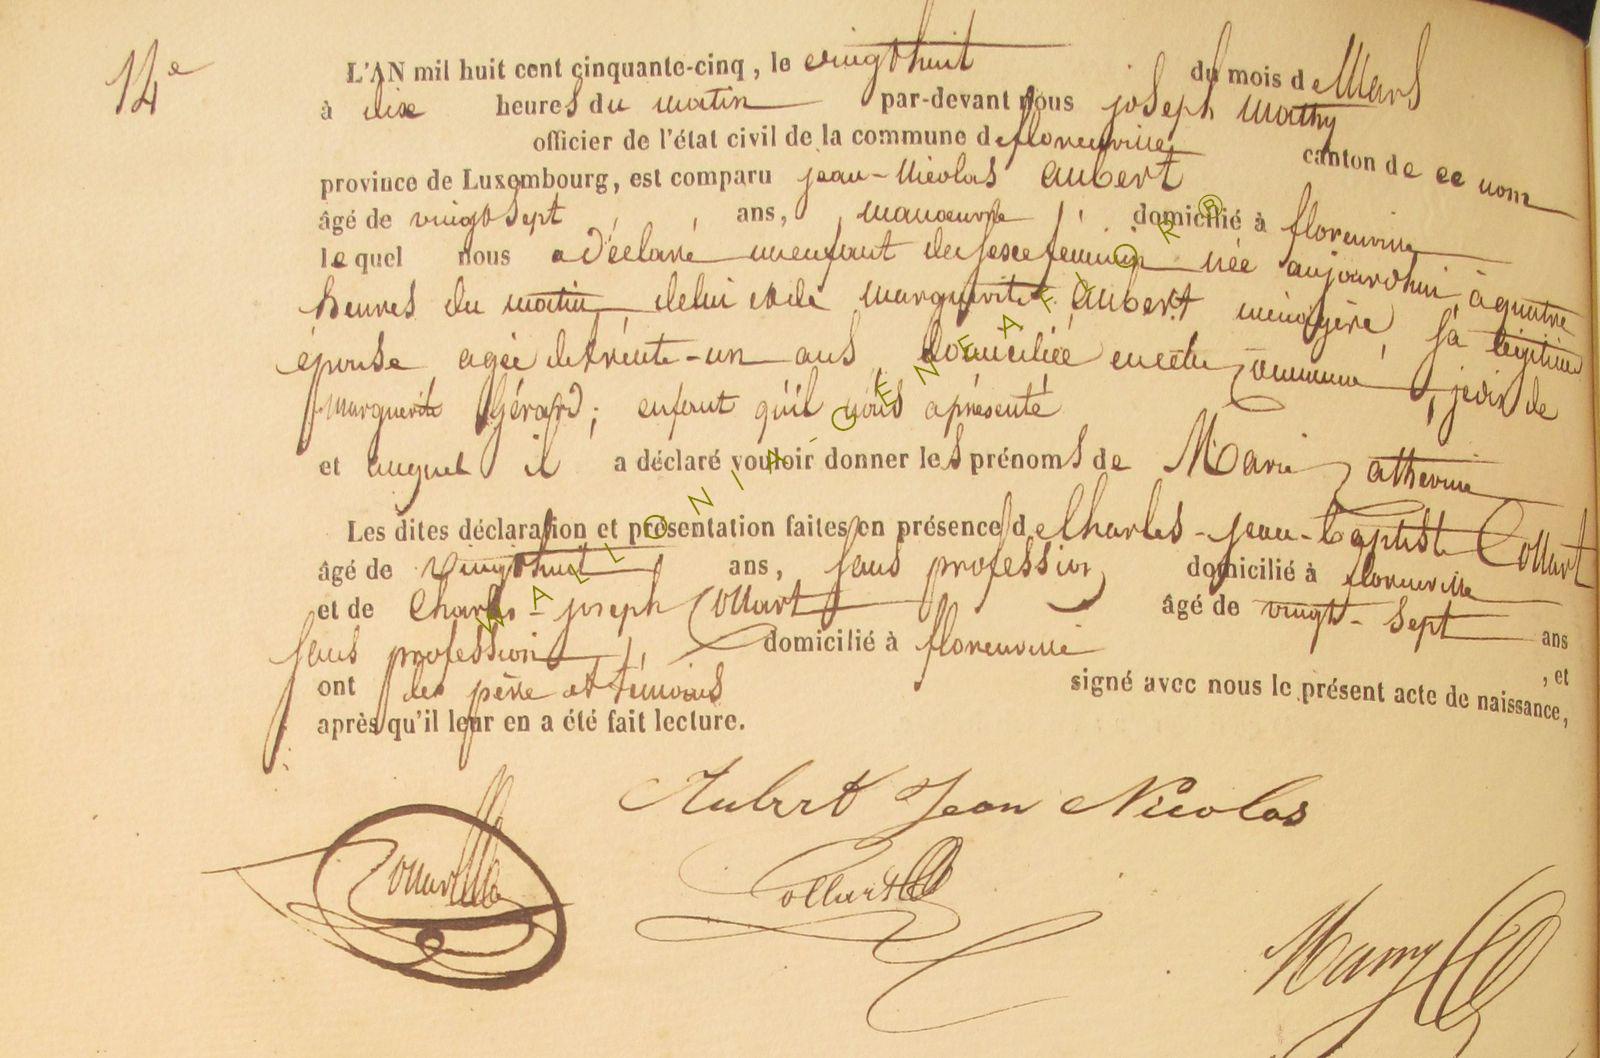 14e
L'AN mil huit cent cinquante-cinq, le vingt huit du mois de Mars
à dix heures du matin par-devant nous joseph Mathy
officier de l'état civil de la commune de florenville canton de ce nom
province de Luxembourg, est comparu jean-Nicolas Aubert
âgé de vingt sept ans, manoeuvre, domicilié à florenville
lequel nous a déclaré un enfant du sexe féminin née aujourdhui, à quatre
heures du matin de lui et de marguerite Aubert ménagère, sa légitime
épouse agée de trente-un ans, domiciliée en cette commune,
marguerite Gérard; enfant qu'il nous a présenté
et auquel il a déclaré vouloir donner les prénoms de Marie Catherine
Les dites déclaration et présentation faites en présence de Charles-jean-baptiste Collart
âgé de vingt huit ans, sans profession domicilié à florenville
et de Charles-joseph Collart âgé de vingt-sept ans
sans profession, domicilié à florenville, et
ont les père et témoins signé avec nous le présent acte de naissance,
après qu'il leur en a été fait lecture.
Aubert Jean Nicolas
Collart
WALLONIA-GENEAFLOR B